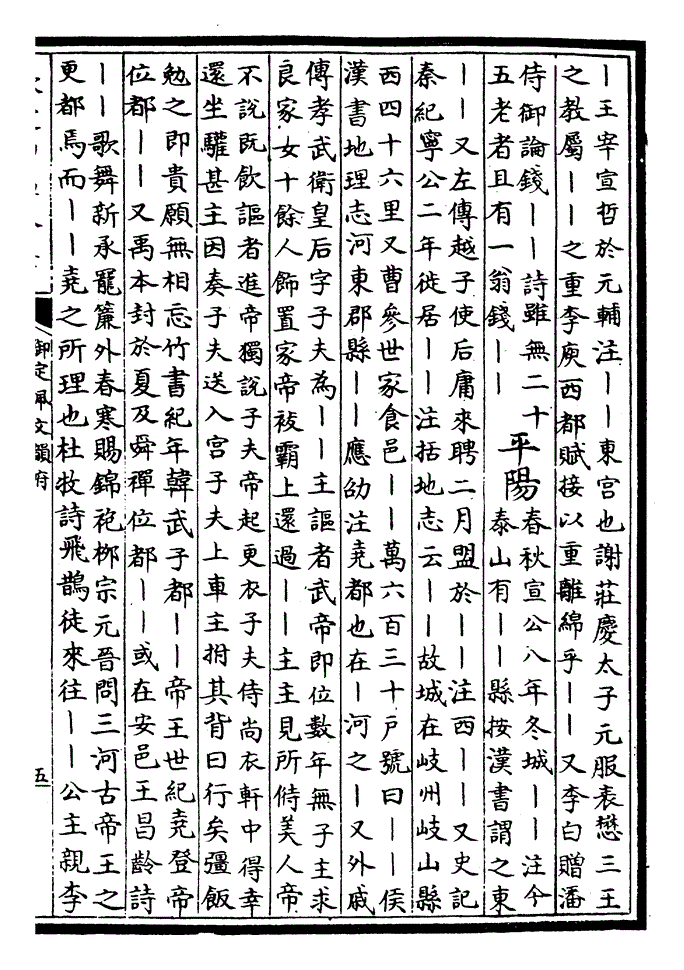 ｜王宰宣哲於元輔注｜｜東宮也謝莊慶太子元服表懋三王
之教屬｜｜之重李庾西都賦接以重離綿乎｜｜又李白贈潘
侍御論錢｜｜詩雖無二十
五老者且有一翁錢｜｜
平陽
春秋宣公八年冬城｜｜注今
泰山有｜｜縣按漢書謂之東
｜｜又左傳越子使后庸來聘二月盟於｜｜注西｜｜又史記
秦紀寧公二年徙居｜｜注括地志云｜｜故城在岐州岐山縣
西四十六里又曹參世家食邑｜｜萬六百三十戶號曰｜｜侯
漢書地理志河東郡縣｜｜應劭注堯都也在｜河之｜又外戚
傳孝武衛皇后字子夫為｜｜主謳者武帝即位數年無子主求
良家女十餘人飾置家帝祓霸上還過｜｜主主見所偫美人帝
不說既飲謳者進帝獨說子夫帝起更衣子夫侍尚衣軒中得幸
還坐驩甚主因奏子夫送入宮子夫上車主拊其背曰行矣彊飯
勉之即貴願無相忘竹書紀年韓武子都｜｜帝王世紀堯登帝
位都｜｜又禹本封於夏及舜禪位都｜｜或在安邑王昌齡詩
｜｜歌舞新承寵簾外春寒賜錦袍柳宗元晉問三河古帝王之
更都焉而｜｜堯之所理也杜牧詩飛鵲徒來往｜｜公主親李
御定佩文韻府
五